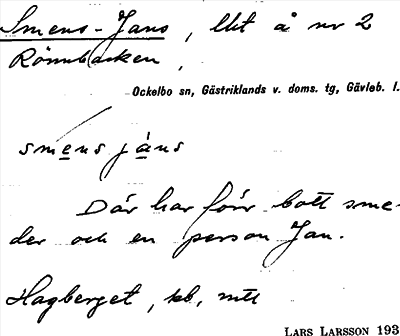 Smens-Jans, lht å nr 2
Rönnbacken,
Ockelbo sn, Gästriklands v. doms. tg, Gävleb. l.
smens jäns
Där har förr bott sme-
der och en person Jan.
Hagberget, kb, mtl
LARS LARSSON 193